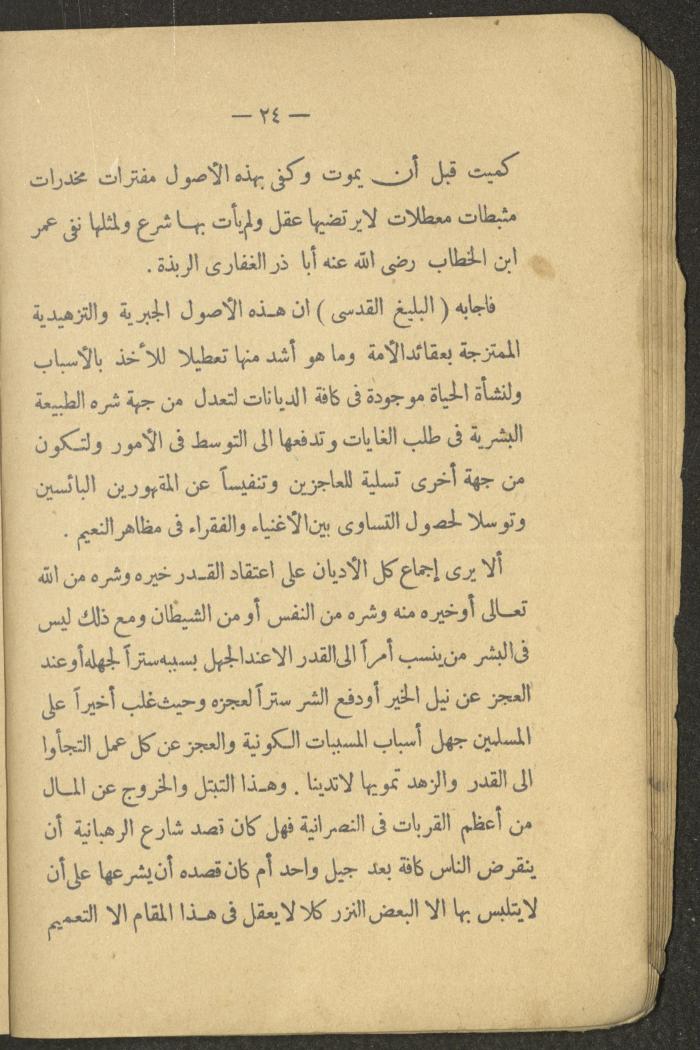 — ٢٤ —
كميت قبل أن يموت وكفى بهذه الأصول مفترات مخدرات
مثبطات معطلات لايرتضيها عقل ولم يأت بها شرع ولمثلها نفى عمر
ابن الخطاب رضى الله عنه أبا ذر الغفارى الربذة .
فاجابه ( البليغ القدسى ) ان هذه الأصول الجبرية والتزهيدية
الممتزجة بعقائد الأمة وما هو أشد منها تعطيلا للأخذ بالأسباب
ولنشأة الحياة موجودة فى كافة الديانات لتعدل من جهة شره الطبيعة
البشرية فى طلب الغايات وتدفعها الى التوسط فى الأمور ولتكون
من جهة أخرى تسلية للعاجزين وتنفيساً عن المقهورين البائسين
وتوسلا لحصول التساوى بين الأغنياء والفقراء فى مظاهر النعيم .
ألا يرى إجماع كل الأديان على اعتقاد القدر خيره وشره من الله
تعالى أو خيره منه وشره من النفس أو من الشيطان ومع ذلك ليس
فى البشر من ينسب أمراً الى القدر الا عند الجهل بسببه ستراً لجهله أو عند
العجز عن نيل الخير أو دفع الشر ستراً لعجزه وحيث غلب أخيراً على
المسلمين جهل أسباب المسببات الكونية والعجز عن كل عمل التجأوا
الى القدر والزهد تمويها لا تدينا . وهذا التبتل والخروج عن المال
من أعظم القربات فى النصرانية فهل كان قصد شارع الرهبانية أن
ينقرض الناس كافة بعد جيل واحد أم كان قصده أن يشرعها على أن
لا يتلبس بها الا البعض النزر كلا لا يعقل فى هذا المقام الا التعميم